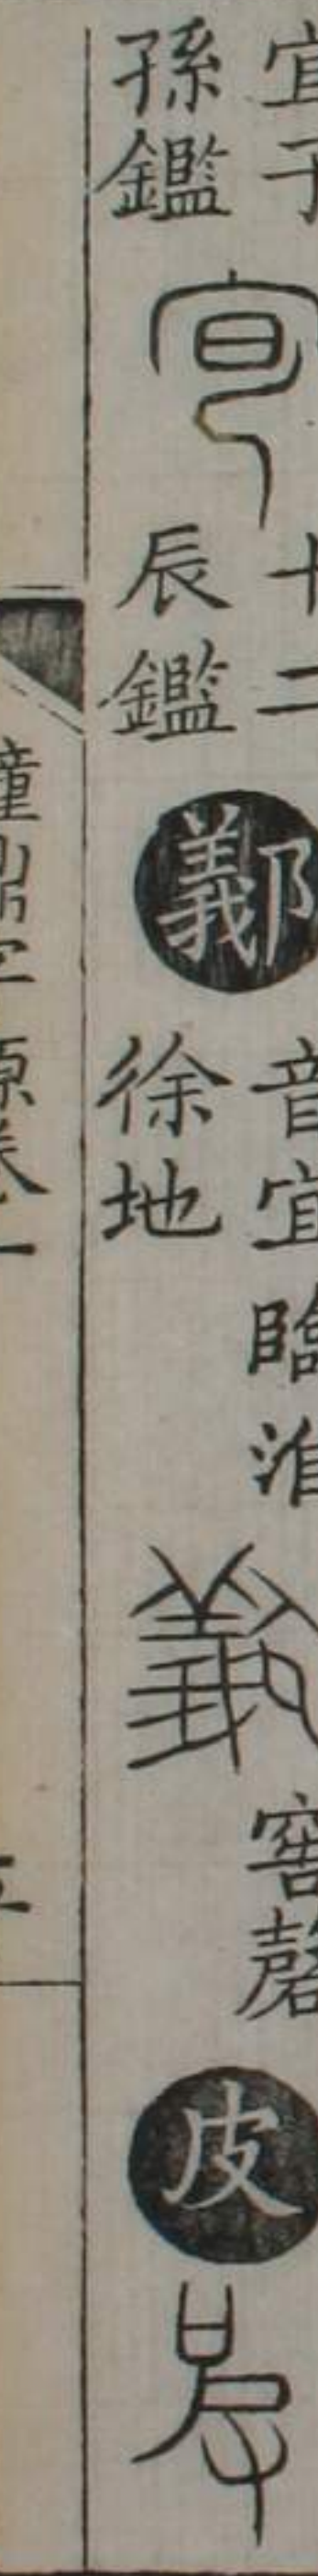 宜子
孫鑑
十二
辰鑑
鄴
音宜臨淮
徐地
窖磬
皮
鐘鼎字源卷一